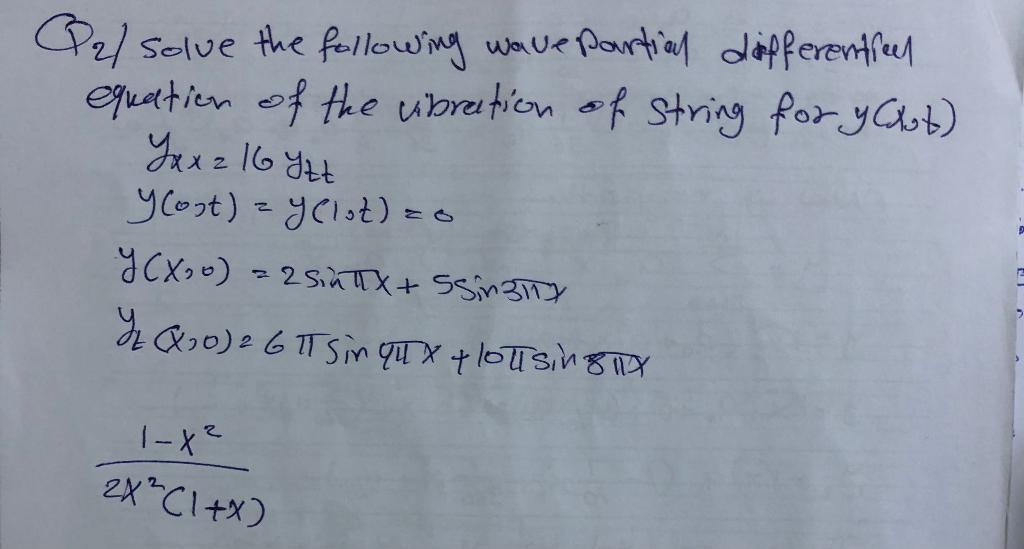 Q2/ solve the following wave partial differential
equation of the vibration of string for y(x,t)
yxx = 16 ytt
y(0,t) = y(1,t) = 0
y(x,0) = 2 sin πx + 5 sin 3πx
yt (x,0) = 6 π sin 4π x + 10π sin 8πx
1-x²
2x²(1+x)